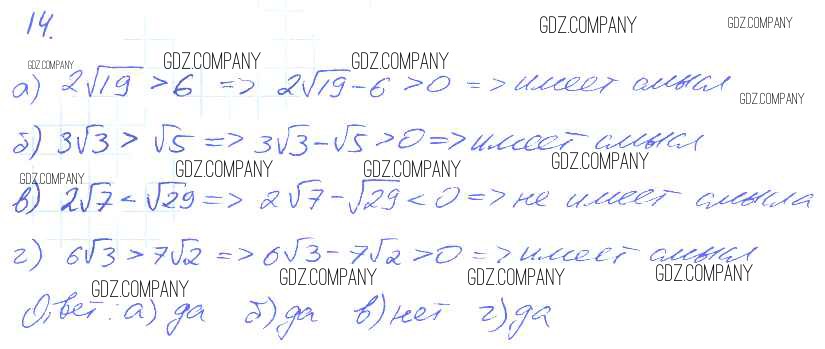 14.
GDZ.COMPANY GDZ.COMPANY
GDZ.COMPANY GDZ.COMPANY GDZ.COMPANY
а) 2√19 > 6 => 2√19 - 6 > 0 => имеет смысл
GDZ.COMPANY
б) 3√3 > √5 => 3√3 - √5 > 0 => имеет смысл
GDZ.COMPANY GDZ.COMPANY GDZ.COMPANY GDZ.COMPANY
в) 2√7 < √29 => 2√7 - √29 < 0 => не имеет смысла
г) 6√3 > 7√2 => 6√3 - 7√2 > 0 => имеет смысл
GDZ.COMPANY GDZ.COMPANY GDZ.COMPANY GDZ.COMPANY
Ответ: а) да б) да в) нет г) да